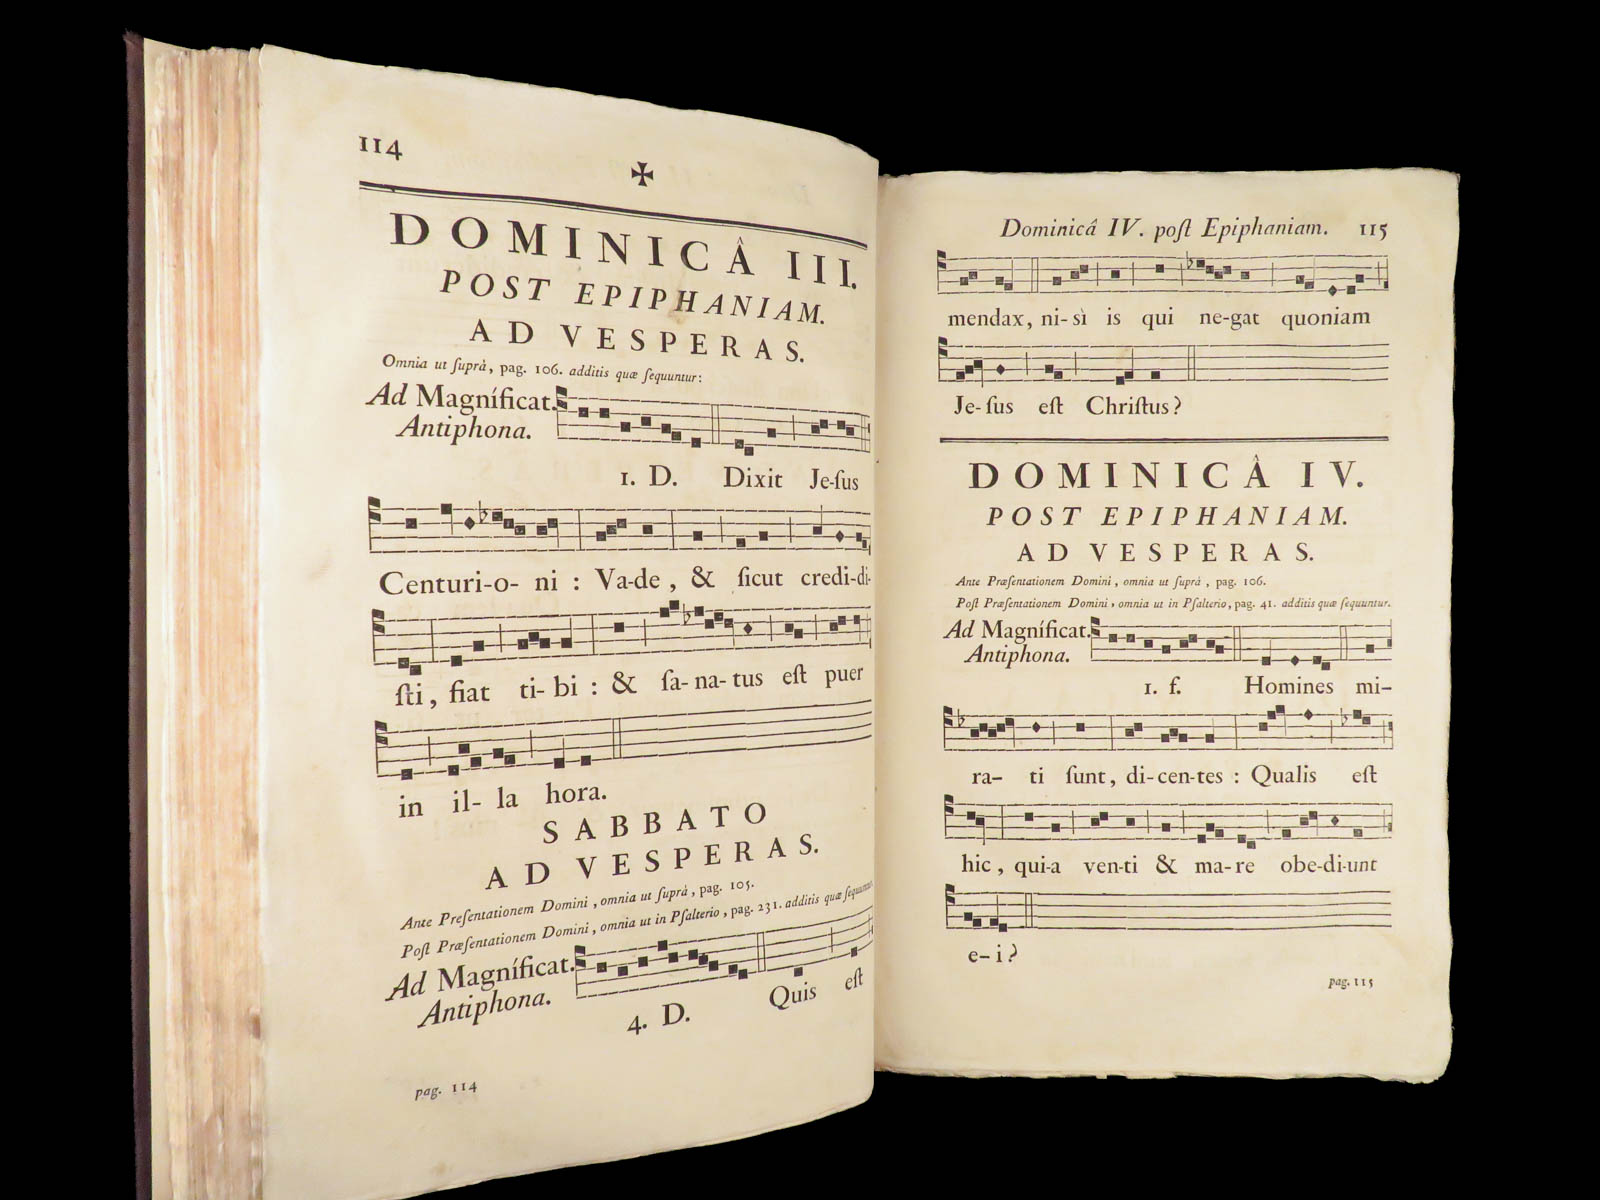 114
✠
DOMINICÂ III.
POST EPIPHANIAM.
AD VESPERAS.
Omnia ut ſuprà, pag. 106. additis quæ ſequuntur:
Ad Magníficat.
Antiphona.
1. D. Dixit Je-ſus
Centuri-o- ni : Va-de, & ſicut credi-di-
ſti, fiat ti- bi : & ſa- na- tus eſt puer
in il- la hora.
SABBATO
AD VESPERAS.
Ante Preſentationem Domini, omnia ut ſuprà, pag. 105.
Poſt Præſentationem Domini, omnia ut in Pſalterio, pag. 231. additis quæ ſequuntur.
Ad Magníficat.
Antiphona.
4. D. Quis eſt
pag. 114
Dominicâ IV. poſt Epiphaniam. 115
mendax, ni- sì is qui ne-gat quoniam
Je- ſus eſt Chriſtus?
DOMINICÂ IV.
POST EPIPHANIAM.
AD VESPERAS.
Ante Præſentationem Domini, omnia ut ſuprà, pag. 106.
Poſt Præſentationem Domini, omnia ut in Pſalterio, pag. 41. additis quæ ſequuntur.
Ad Magníficat.
Antiphona.
1. f. Homines mi-
ra- ti ſunt, di-cen-tes : Qualis eſt
hic, qui-a ven-ti & ma- re obe-di-unt
e- i?
pag. 115